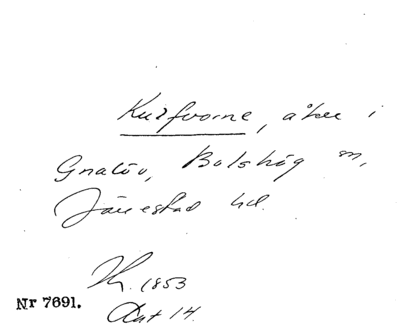 Kulfvorne, åker i
Gnalöv, Bolshög sn,
Järrestad hd.
Kr. 1853
Akt 14.
Nr 7691.